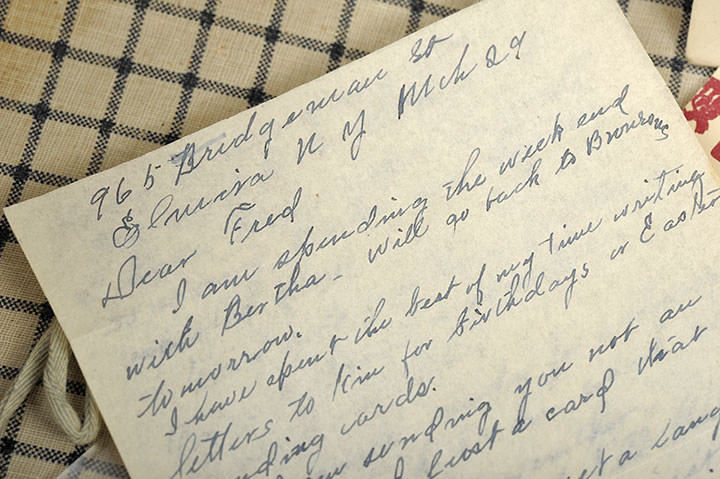 965 Bridgeman St
Elmira N Y Mch 29
Dear Fred
I am spending the week end
with Bertha - will go back to Bronsons
tomorrow.
I have spent the best of my time writing
letters to Kin for birthdays or Easter
cards.
sending you not an
just a card that